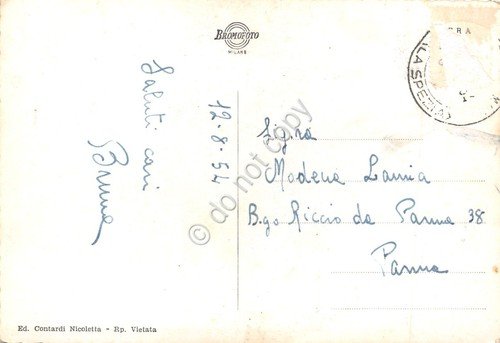 BROMOFOTO
MILANO
Saluti cari
Bruna
12.8.54
Sig.ra
Modena Lamia
B.go Riccio da Parma 38
Parma
LA SPEZIA
Ed. Contardi Nicoletta - Rp. Vietata
© do not copy